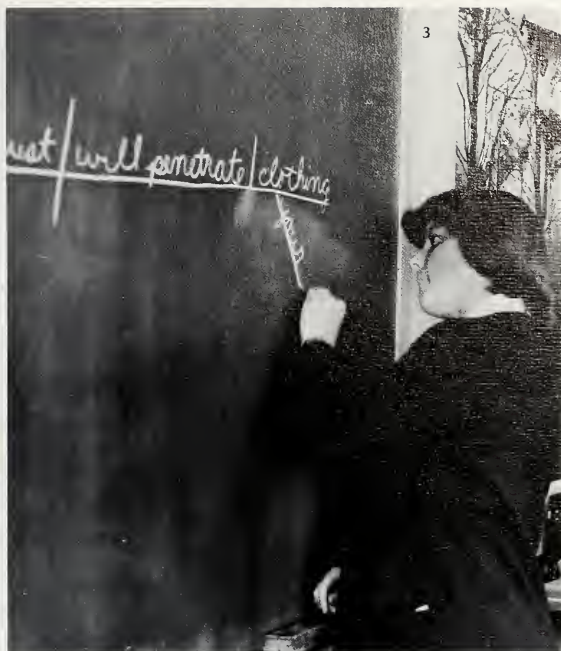 3
ust / will penetrate / clothing
your